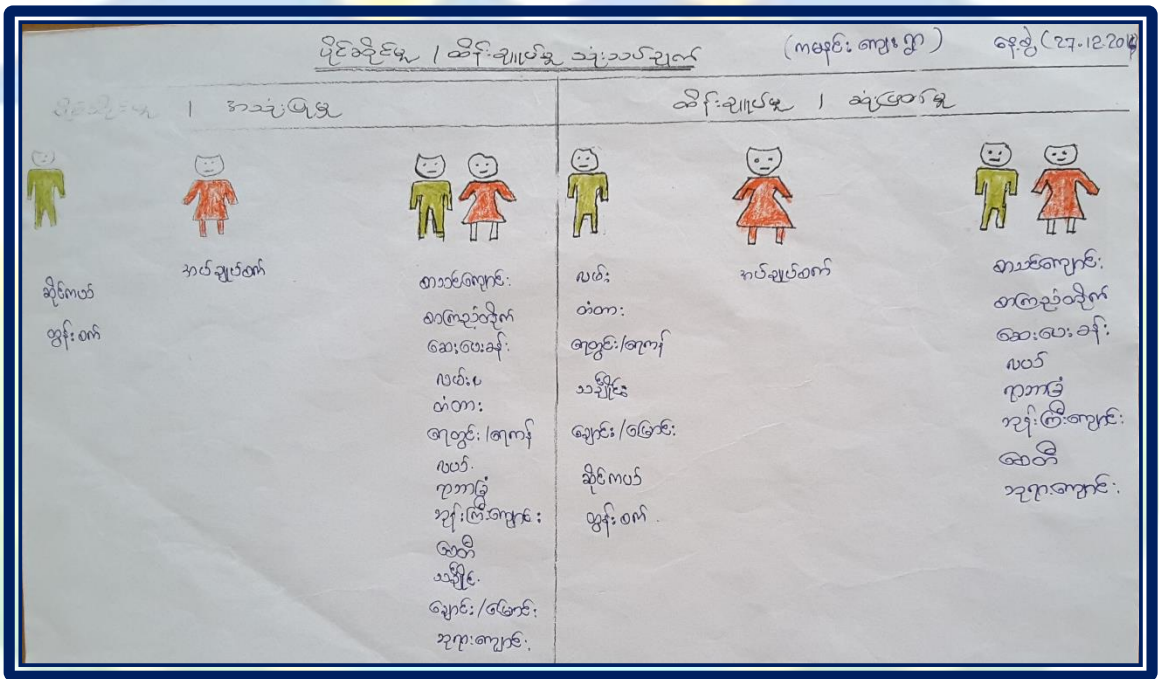 ပိုင်ဆိုင်မှု / ထိန်းချုပ်မှု သုံးသပ်ချက်
(ကမနင်း ကျေးရွာ)
နေ့စွဲ (27.12.201
ပိုင်ဆိုင်မှု / အသုံးပြုမှု
ထိန်းချုပ်မှု / ဆုံးဖြတ်မှု
ဆိုင်ကယ်
ထွန်းစက်
အပ်ချုပ်စက်
စာသင်ကျောင်း
စာကြည့်တိုက်
ဆေးပေးခန်း
လမ်း
တံတား
ရေတွင်း/ရေကန်
လယ်
ရာဘာခြံ
ဘုန်းကြီးကျောင်း
စေတီ
သချိုင်း
ချောင်း/မြောင်း
ဘုရားကျောင်း
လမ်း
တံတား
ရေတွင်း/ရေကန်
သချိုင်း
ချောင်း/မြောင်း
ဆိုင်ကယ်
ထွန်းစက်
အပ်ချုပ်စက်
စာသင်ကျောင်း
စာကြည့်တိုက်
ဆေးပေးခန်း
လယ်
ရာဘာခြံ
ဘုန်းကြီးကျောင်း
စေတီ
ဘုရားကျောင်း